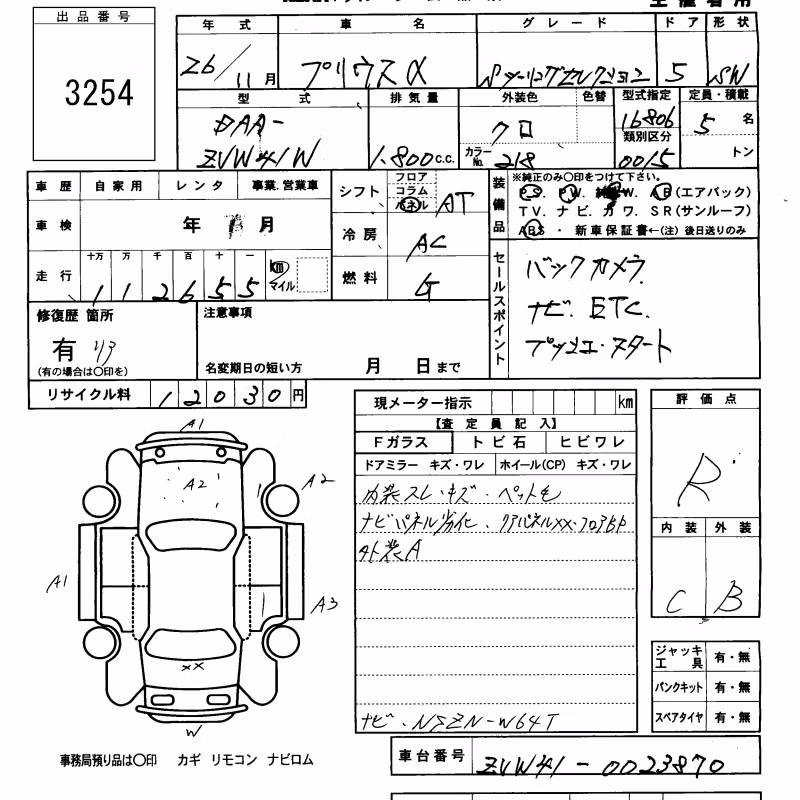 出品番号
3254
年式 車名 グレード ドア 形状
26/11月 プリウスα Sツーリングセレクション 5 SW
型式 排気量 外装色 色替 型式指定 定員・積載
DAA- クロ 16806 5名
類別区分
ZVW41W 1.800c.c. カラーNo. 218 0015 トン
車歴 自家用 レンタ 事業.営業車
車検 年 月
走行 十万 万 千 百 十 一
112655 km マイル
シフト フロア コラム パネル AT
冷房 AC
燃料 G
装備品
※純正のみ〇印をつけて下さい。
P S. P W. W. A B (エアバック)
TV. ナビ. カワ. SR(サンルーフ)
ABS ・ 新車保証書←(注) 後日送りのみ
セールスポイント
バックカメラ.
ナビ. ETC.
プッシュ・スタート
修復歴 箇所
有 リア
(有の場合は〇印を)
注意事項
名変期日の短い方 月 日まで
リサイクル料 12030円
現メーター指示 km
【査定員記入】
Fガラス トビ石 ヒビワレ
ドアミラー キズ・ワレ ホイール(CP) キズ・ワレ
内装スレ・キズ・ペット毛
ナビパネル劣化、リアパネルXX・フロアBP
外装A
ナビ・NSZN-W64T
評価点
R
内装 外装
C B
ジャッキ工具 有・無
パンクキット 有・無
スペアタイヤ 有・無
A1
A2
A2
A1
A3
XX
W
事務局預り品は〇印 カギ リモコン ナビロム
車台番号 ZVW41-0023870